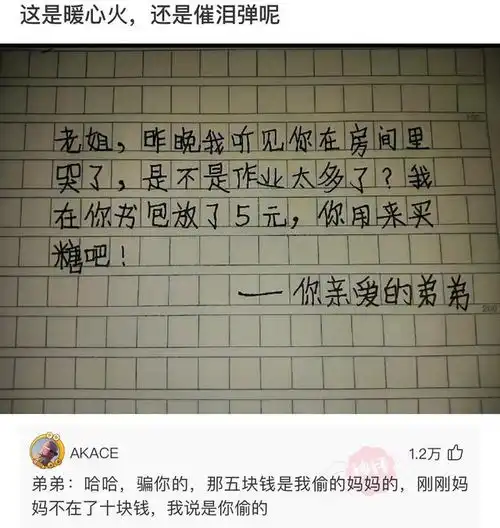 这是暖心火，还是催泪弹呢
老姐，昨晚我听见你在房间里
哭了，是不是作业太多了？我
在你书包放了5元，你用来买
糖吧！
——你亲爱的弟弟
AKACE
1.2万
弟弟：哈哈，骗你的，那五块钱是我偷的妈妈的，刚刚妈
妈不在了十块钱，我说是你偷的